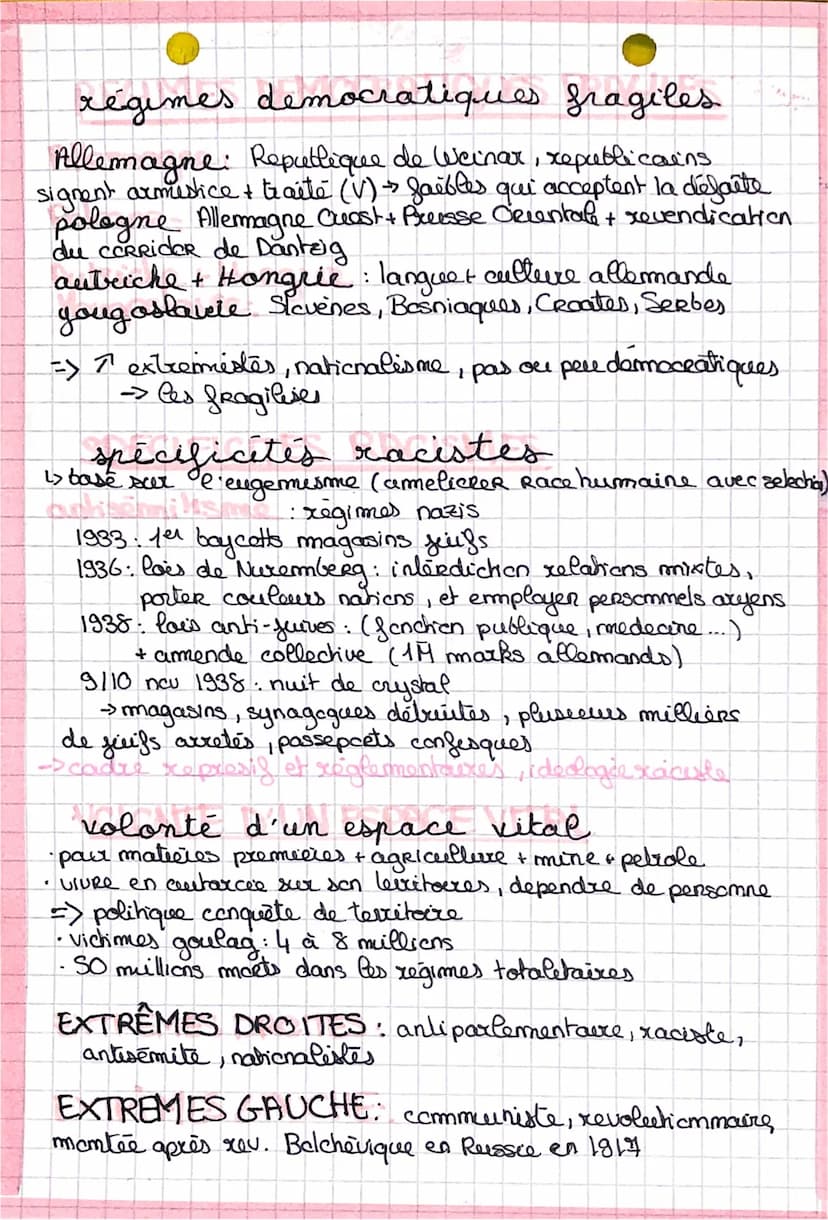 régimes democratiques fragiles
Allemagne: Republique de Weinar, republicains
signent armistice + traité (V) → faibles qui acceptent la défaite
pologne Allemagne Ouest + Prusse Orientale + revendication
du CORRIDOR de Dantzig
autriche + Hongrie : langue + culture allemande
yougoslavie Slovènes, Bosniaques, Croates, Serbes
=> ↑ extremistes, nationalisme, pas ou peu démocratiques
→ les fragilise
spécificités racistes
↳ basé sur l'eugenisme (ameliorer Race humaine avec selection)
antisémitisme : régimes nazis
1933 : 1er boycotts magasins juifs
1936 : lois de Nuremberg : interdiction relations mixtes,
porter couleurs nations, et employer personnels aryens
1938 : lois anti-juives : (fonction publique, medecine ...)
+ amende collective (1M marks allemands)
9/10 nov 1938 : nuit de crystal
→ magasins, synagogues détruites, plusieurs milliers
de juifs arretés, passeports confisqués
→ cadre represif et réglementaires, idéologie raciste
volonté d'un espace vital
· pour matières premieres + agriculture + mine + petrole
· vivre en autarcie sur son territoires, dependre de personne
=> politique conquête de territoire
· victimes goulag : 4 à 8 millions
· 50 millions morts dans les régimes totalitaires
EXTRÊMES DROITES : antiparlementaire, raciste,
antisémite, nationalistes
EXTREMES GAUCHE : communiste, revolutionnaire,
montée après rev. Bolchévique en Russie en 1917